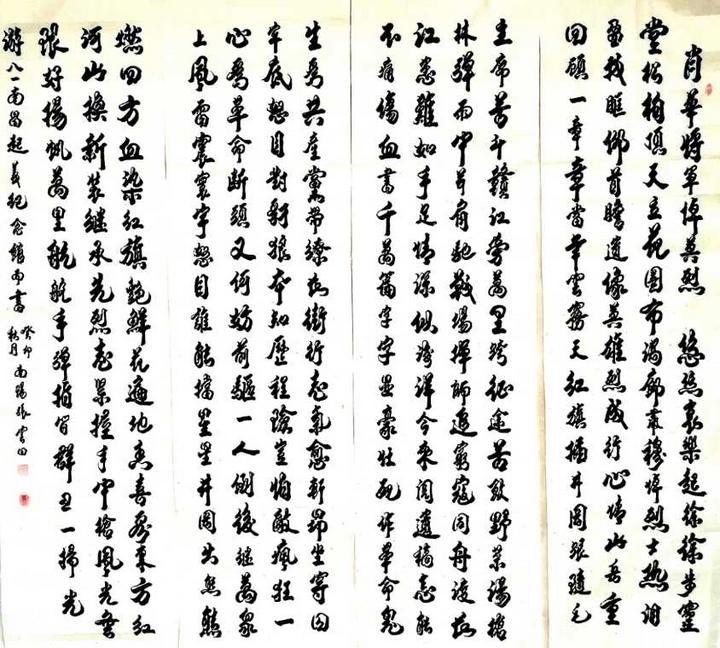 肖華將軍悼英烈 悠悠哀樂起徐徐步靈
堂松柏頂天立花圈布滿廊肅穆悼烈士熱淚
盈我眶仰首瞻遺像英雄烈成行心情山岳重
回顧一章章當年雲霧天紅旗插井岡張隨毛
主席苦斗贛江旁萬里跨征途苦咬野菜湯槍
林彈雨中并肩馳戰場揮師追窮寇同舟渡長
江患難如手足情深似海洋今來閱遺稿怎能
不痛傷血書千萬篇字字呈豪壯死作革命鬼
生爲共產黨帶鐐長街行志氣愈軒昂坐穿囚
牢底怒目對豺狼本知歷程險豈怕敵瘋狂一
心爲革命斷頭又何妨前驅一人倒後繼萬衆
上風雷震寰宇怒目誰能擋星星井岡火熊熊
燃四方血染紅旗艷鮮花遍地香喜看東方紅
河山換新裝繼承先烈志緊握手中槍風光無
限好揚帆萬里航航手彈指間群丑一掃光
游八一南昌起義紀念館而書
癸卯
秋月 南陽張雲田